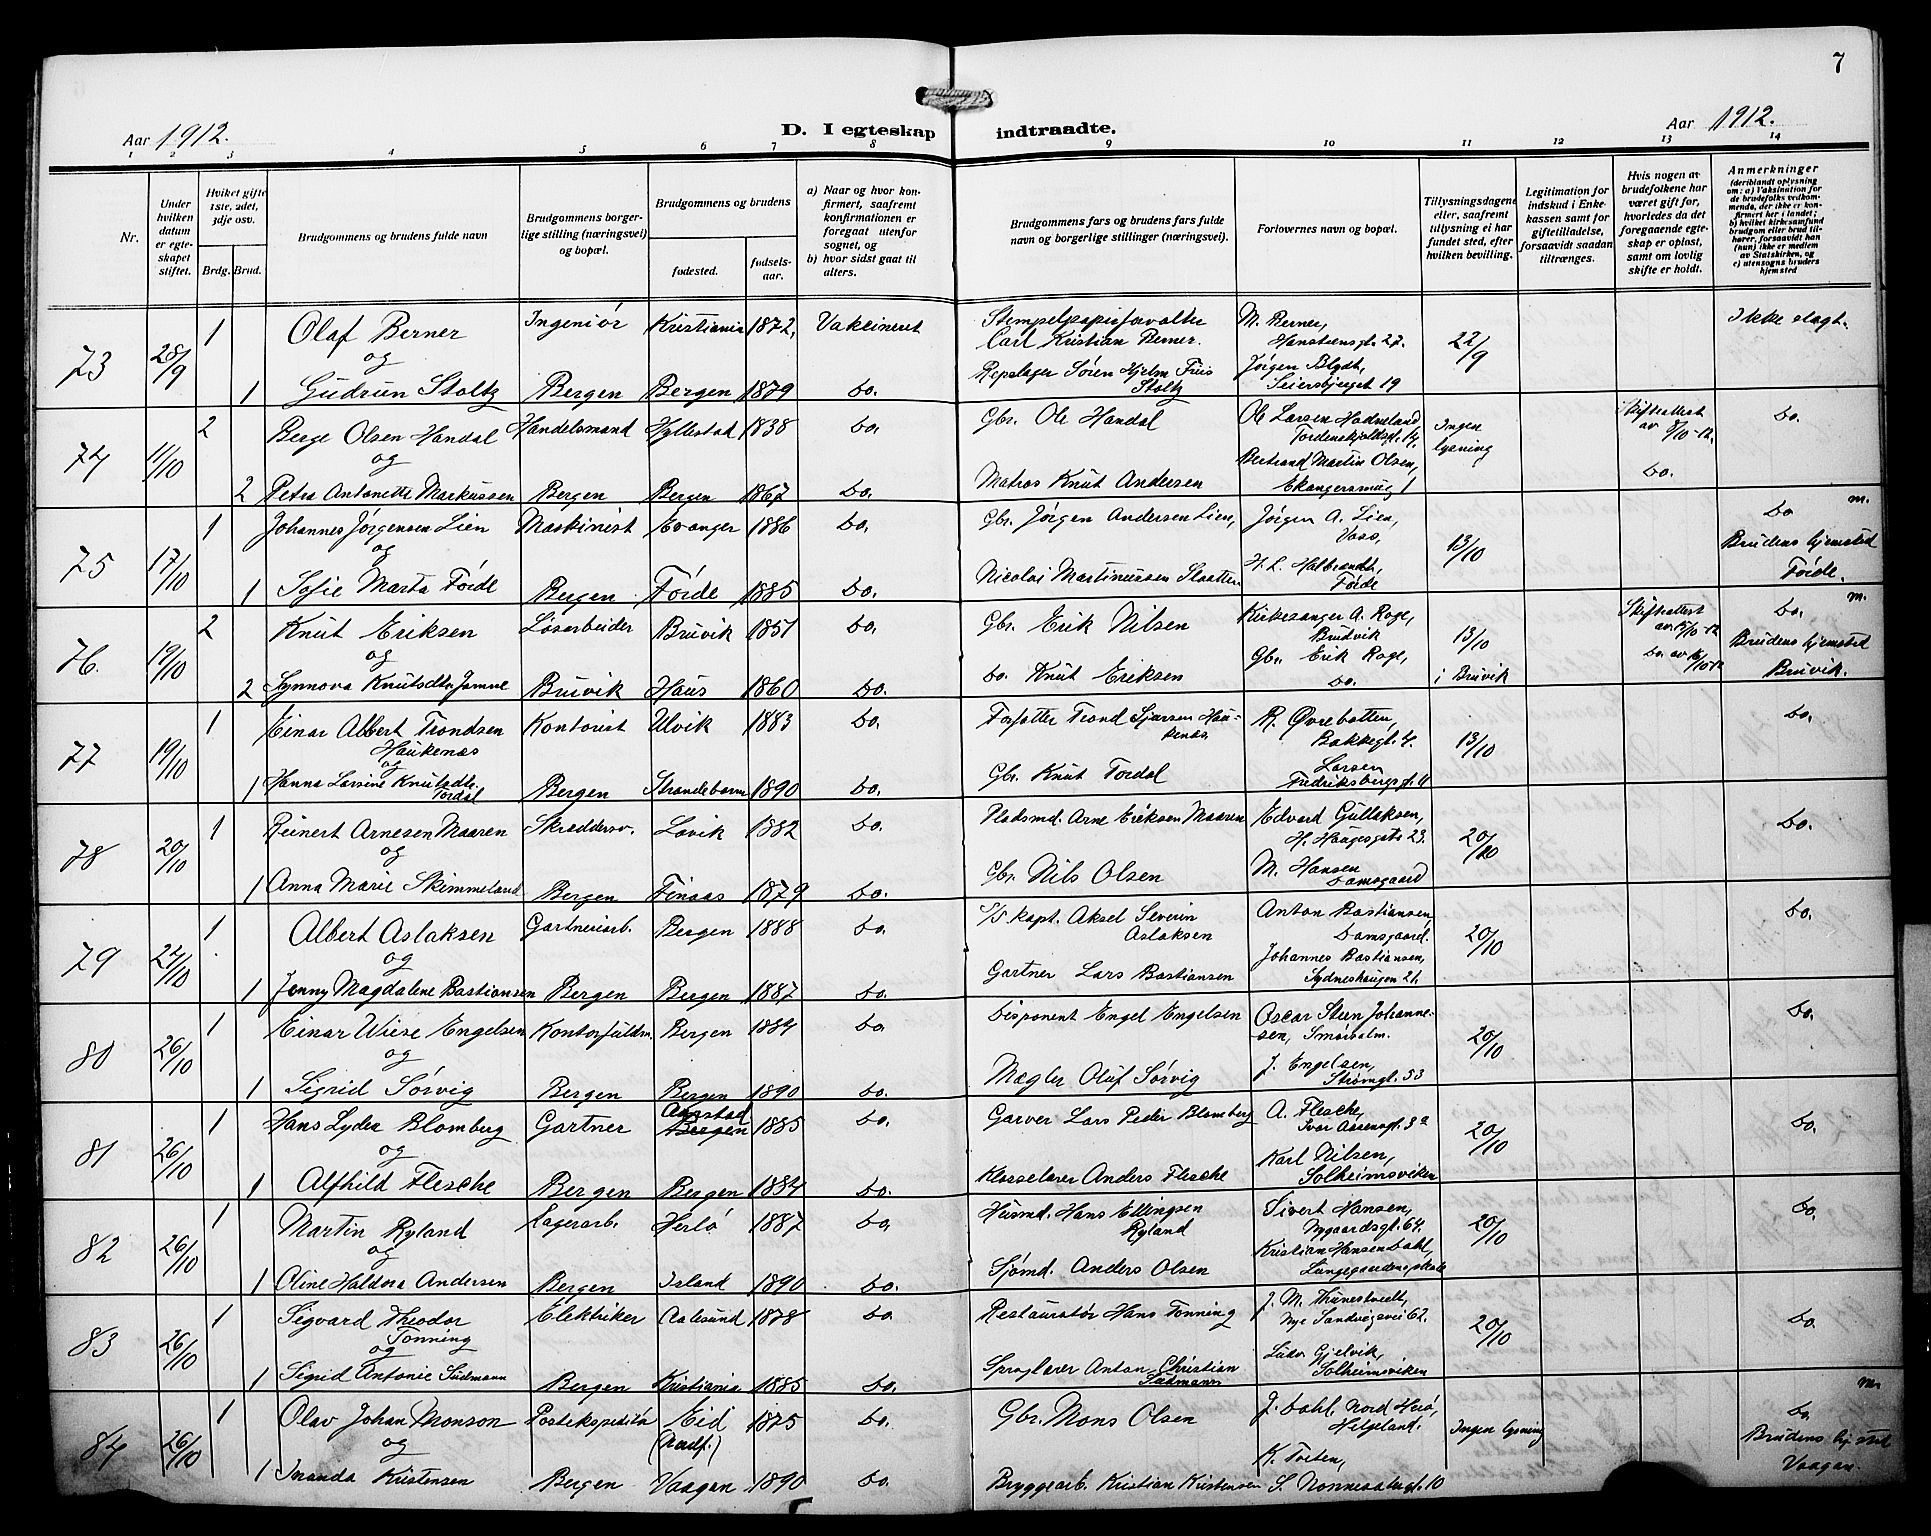 7
Aar 1912.
D. I egteskap indtraadte.
Aar 1912.
1 2 3 4 5 6 7 8 9 10 11 12 13 14
Nr.
Under hvilken datum er egteskapet stiftet.
Hvilket gifte 1ste, 2det, 3dje osv.
Brdg. Brud.
Brudgommens og brudens fulde navn
Brudgommens borgerlige stilling (næringsvei) og bopæl.
Brudgommens og brudens
fødested.
fødselsaar.
a) Naar og hvor konfirmert, saafremt konfirmationen er foregaat utenfor sognet, og
b) hvor sidst gaat til alters.
Brudgommens fars og brudens fars fulde navn og borgerlige stillinger (næringsvei).
Forlovernes navn og bopæl.
Tillysningsdagene eller, saafremt tillysning ei har fundet sted, efter hvilken bevilling.
Legitimation for indskud i Enkekassen samt for giftetilladelse, forsaavidt saadan tiltrænges.
Hvis nogen av brudefolkene har været gift før, hvorledes da det foregaaende egteskap er opløst, samt om lovlig skifte er holdt.
Anmerkninger
(deriblandt oplysning om: a) Vaksination for de brudefolks vedkommende, der ikke er konfirmert her i landet; b) hvilket kirkesamfund brudgom eller brud tilhører, forsaavidt han (hun) ikke er medlem av Statskirken, og c) utensogns bruders hjemsted
73 28/9 1 Olaf Berner Ingeniør Kristiania 1872, Vakcineret Stempelpapirforvalter Carl Kristian Berner. M. Berner, Hansteensgt. 27. 22/9 Ikke slegt.
og
1 Gudrun Stoltz Bergen Bergen 1879 Do. Repslager Søren Hjelm Friis Stoltz Jørgen Blydt, Seiersbjerget 19
74 11/10 2 Berge Olsen Handal Handelsmand Hyllestad 1838 Do. Gbr. Ole Handal Ole Larsen Hadneland Tordenskjoldsgt. 14. Ingen lysning Skifteattest av 8/10-12. Do.
og
2 Petra Antonette Markussen Bergen Bergen 1867 Do. Matros Knut Andersen Bertrand Martin Olsen, Ekangersmug 1 Do.
75 17/10 1 Johannes Jørgensen Lien Maskinist Evanger 1886 Do. Gbr. Jørgen Andersen Lien, Jørgen A. Lien, Voss, 13/10 Do m.
og
1 Sofie Marta Förde Bergen Förde 1885 Do. Nicolai Martinussen Slaatten H. L. Halbrandt, Förde Brudens hjemsted Förde.
76. 19/10 2 Knut Eriksen Løsarbeider Bruvik 1851 Do. Gbr. Erik Nilsen Kirkesanger A. Roge, Brudvik 13/10 Skifteattest av 15/10-12 Do. m.
og
2 Synnova Knutsdtr Jamne Bruvik Haus 1860 Do. Do. Knut Eriksen Gbr. Erik Roge, Do. i Bruvik Do. av 16/10-12 Brudens hjemsted Bruvik.
77 19/10 1 Einar Albert Trondsen Haukenæs Kontorist Ulvik 1883 Do. Forfatter Trond Sjursen Haukenæs R. Øvrebotten, Bakkegt. 4. 13/10 Do.
og
1 Hanna Larsine Knutsdtr. Tordal Bergen Strandebarm 1890 Do. Gbr. Knut Tordal Larsen Fredriksbergsgt. 11
78 20/10 1 Reinert Arnesen Maaren Skreddersv. Lavik 1882 Do. Pladsmd. Arne Eriksen Maaren Edvard Gullaksen, H. Haugesgate 23. 20/10 Do.
og
1 Anna Marie Skimmeland Bergen Finaas 1879 Do. Gbr. Nils Olsen M. Hansen Damsgaard
79 24/10 1 Albert Aslaksen Gartneriarb. Bergen 1888 Do. D/S kapt. Aksel Severin Aslaksen Anton Bastiansen, Damsgaard. 20/10 Do.
og
1 Jenny Magdalene Bastiansen Bergen Bergen 1887 Do. Gartner Lars Bastiansen Johannes Bastiansen, Sydneshaugen 21.
80 26/10 1 Einar Wiese Engelsen Kontorfuldm. Bergen 1884 Do. Disponent Engel Engelsen Oscar Steen Johannesen, Smørsalm. 20/10 Do.
og
1 Sigrid Sørvig Bergen Bergen 1890 Do. Mægler Oluf Sørvig J. Engelsen, Strømgt. 53
81 26/10 1 Hans Lyder Blomberg Gartner Aarstad Bergen 1885 Do. Garver Lars Peder Blomberg A. Flesche, Ivar Aasensgt. 3a 20/10 Do.
og
1 Alfhild Flesche Bergen Bergen 1884 Do. Klasselærer Anders Flesche Karl Nilsen, Solheimsviken
82 26/10 1 Martin Ryland Lagerarb. Herlö 1887 Do. Husmd. Hans Ellingsen Ryland Sivert Hansen, Nygaardsgt. 64. 20/10 Do.
og
1 Oline Haldora Andersen Bergen Island 1890 Do. Sjømd. Anders Olsen Kristian Hansen Dahl, Lungegaardens
83 26/10 1 Sigvard Theodor Tonning Elektriker Aalesund 1878 Do. Restauratør Hans Tonning J. M. Thunestvedt, Nye Sandvigsvei 62. 20/10 Do.
og
1 Sigrid Antonie Sudmann Bergen Kristiania 1885 Do. Sproglærer Anton Christian Sudmann Ludv. Gjelvik, Solheimsviken
84 26/10 1 Olav Johan Monson Postekspeditör Eid (Nordf.) 1875 Do. Gbr. Mons Olsen J. Dahl Nord Herö, Helgeland. Ingen lysning Do. m.
og
1 Inanda Kristensen Bergen Vaagan 1890 Do. Bryggearb. Kristian Kristensen K. Torten, S. Nonnesætergt. 10 Brudens hjemsted Vaagan.